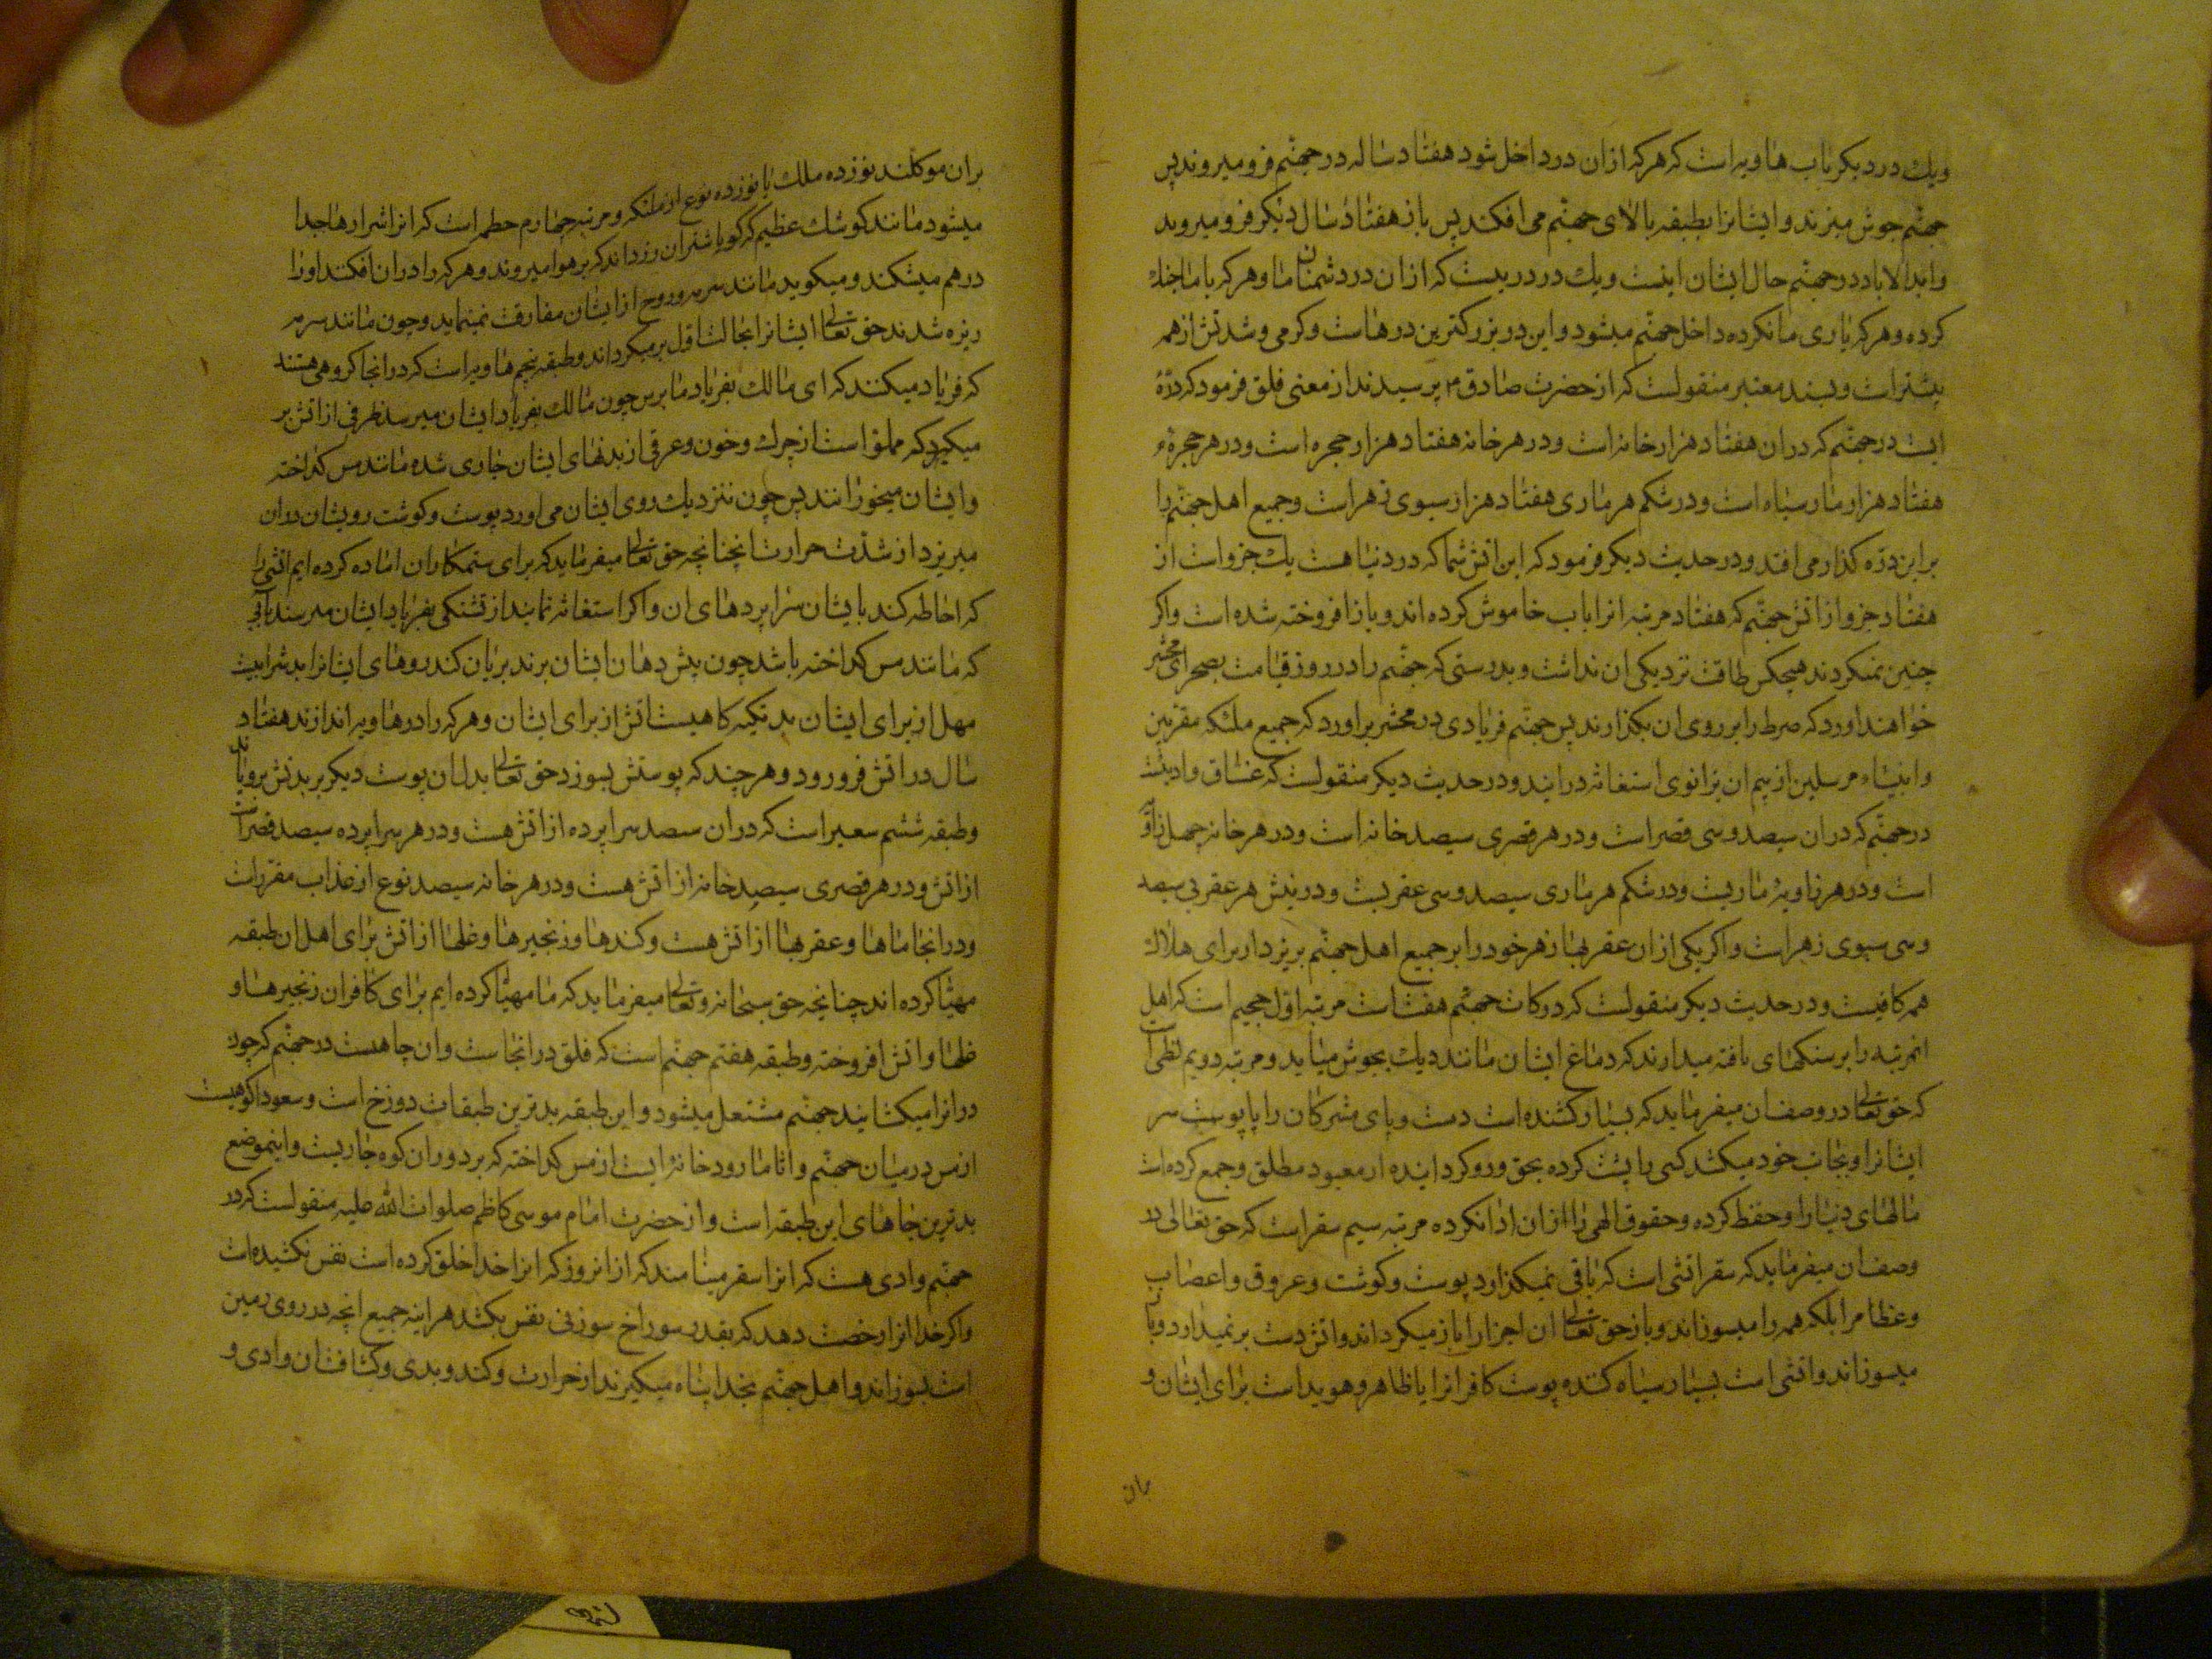 ویك در دیكر باب هاویه است كه هر كه ازان در داخل شود هفتاد ساله در جهنّم فرو میروند پس
جهنّم جوش میزند و ایشانرا بطبقه بالای جهنّم می افكند پس باز هفتاد سال دیكر فرو میروند
وابدالاباد در جهنّم حال ایشان اینست ویك در دریست كه ازان در دشمنان ما وهر كه باما جنك
كرده وهر كه یاری ما نكرده داخل جهنّم میشود واین در بزركترین درهاست وكرمی وشدتش از همه
بیشتر است وبسند معتبر منقولست كه از حضرت صادق م پرسیدند از معنی فلق فرمود كه درّهٔ
ایست در جهنّم كه دران هفتاد هزار خانه است ودر هر خانه هفتاد هزار حجره است ودر هر حجرهٔ
هفتاد هزار مار سیاه است ودر شكم هر ماری هفتاد هزار سبوی زهر است وجمیع اهل جهنّم را
بر این درّه كذار می افتد ودر حدیث دیكر فرمود كه این اتش شما كه در دنیا هست یك جزو است از
هفتاد جزو از اتش جهنّم كه هفتاد مرتبه انرا باب خاموش كرده اند وباز افروخته شده است واكر
چنین نمیكردند هیچكس طاقت نزدیكی ان نداشت وبدرستی كه جهنّم را در روز قیامت بصحرای محشر
خواهند اورد كه صرط را بر روی ان بكذارند پس جهنّم فریادی در محشر براورد كه جمیع ملئكه مقربین
وانبیاء مرسلین از بیم ان بزانوی استغاثه در ایند ودر حدیث دیكر منقولست كه غساق وادیست
در جهنّم كه دران سیصد وسی قصر است ودر هر قصری سیصد خانه است ودر هر خانه چهل زاویه
است ودر هر زاویهٔ ماریست ودر شكم هر ماری سیصد وسی عقربست ودر نیش هر عقربی سیصد
وسی سبوی زهر است واكر یكی از ان عقربها زهر خود را بر جمیع اهل جهنّم بریزد از برای هلاك
همه كافیست ودر حدیث دیكر منقولست كه دركات جهنّم هفت است مرتبه اوّل جحیم است كه اهل
انمرتبه را بر سنكهای تافته میدارند كه دماغ ایشان مانند دیك بجوش میاید ومرتبه دویم لظی است
كه حق تعالی در وصف ان میفرماید كه بسیار كشنده است دست وپای مشركان را یا پوست سر
ایشانرا وبجانب خود میكشد كسی را كه پشت كرده بحق ورو كردانیده از معبود مطلق وجمع كرده است
مالهای دنیا را وحفظ كرده وحقوق الهی را از ان ادا نكرده مرتبه سیم سقر است كه حق تعالی در
وصف ان میفرماید كه سقر اتشی است كه باقی نمیكذارد پوست وكوشت وعروق واعصاب
وعظام را بلكه همه را میسوزاند وباز حق تعالی ان اجزا را باز میكرداند واتش دست بر نمیدارد وباز
میسوزاند واتشی است بسیار سیاه كننده پوست كافرانرا یا ظاهر وهویداست برای ایشان و
بران
بران موكلند نوزده ملك یا نوزده نوع از ملئكه ومرتبه چهارم حطمه است كه ازان شرارها جدا
میشود مانند كوشك عظیم كه كویا شتران زرداند كه بر هوا میروند وهر كه را دران افكنند اورا
در هم میشكند ومیكوبد مانند سرمه وروح از ایشان مفارقت نمینماید وچون مانند سرمه
ریزه شدند حق تعالی ایشانرا بحالت اوّل بر میكرداند وطبقه پنجم هاویه است كه در انجا كروهی هستند
كه فریاد میكنند كه ای مالك بفریاد ما برس چون مالك بفریاد ایشان میرسد ظرفی از اتش بر
میكیرد كه مملو است از چرك وخون وعرقی از بدنهای ایشان جاری شده مانند مس كداخته
وبایشان میخورانند پس چون نزدیك روی ایشان می اورد پوست وكوشت رویشان دران
میریزد از شدّت حرارت ان چنانچه حق تعالی میفرماید كه برای ستمكاران اماده كرده ایم اتشی را
كه احاطه كند بایشان سراپردهای ان واكر استغاثه نمایند از تشنكی بفریاد ایشان میرسند بابی
كه مانند مس كداخته باشد چون پیش دهان ایشان برند بریان كند روهای ایشانرا بد شرابیست
مهل از برای ایشان بد تكیه كاهیست اتش از برای ایشان وهر كه را در هاویه اندازند هفتاد
سال در اتش فرو رود وهر چند كه پوستش بسوزد حق تعالی بدل ان پوست دیكر بر بدنش برویاند
وطبقه ششم سعیر است كه دران سیصد سراپرده از اتش هست ودر هر سراپرده سیصد قصر است
از اتش ودر هر قصری سیصد خانه از اتش هست ودر هر خانه سیصد نوع از عذاب مقرر است
ودر انجا مارها وعقربها از اتش هست وكندها وزنجیرها وغلها از اتش برای اهل ان طبقه
مهیّا كرده اند چنانچه حق سبحانه وتعالی میفرماید كه ما مهیّا كرده ایم برای كافران زنجیرها و
غلها واتش افروخته وطبقه هفتم جهنّم است كه فلق در انجاست وان چاهیست در جهنّم كه چون
در انرا میكشایند جهنّم مشتعل میشود واین طبقه بدترین طبقات دوزخ است وصعودا كوهیست
از مس در میان جهنّم واثاما رود خانه ایست از مس كداخته كه بر دوران كوه جاریست واینموضع
بدترین جاهای این طبقه است واز حضرت امام موسی كاظم صلوات الله علیه منقولست كه در
جهنّم وادی هست كه انرا سقر مینامند كه از انروز كه انرا خدا خلق كرده است نفس نكشیده است
واكر خدا انرا رخصت دهد كه بقدر سوراخ سوزنی نفس بكشد هراینه جمیع انچه در روی زمین
است بسوزاند واهل جهنّم بخدا پناه میكیرند از حرارت وكند وبدی وكثافت ان وادی و